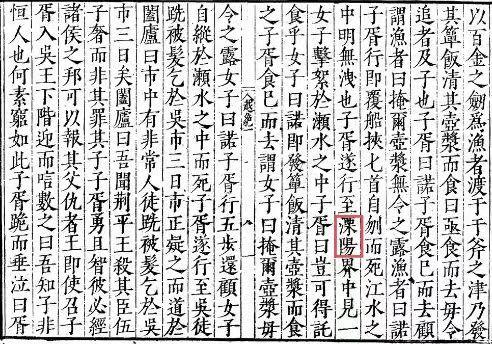 以百金之劍為漁者渡于于斧之津乃發
其簞飯清其壺漿而食曰亟食而去毋令
追者及子也子胥曰諾子胥食已而去顧
謂漁者曰掩爾壺漿無令之露漁者曰諾
子胥行即覆船挾匕首自刎而死江水之
中明無洩也子胥遂行至溧陽界中見一
女子擊絮於瀨水之中子胥曰豈可得託
食乎女子曰諾即發簞飯清其壺漿而食
之子胥食已而去謂女子曰掩爾壺漿毋
越絕
令之露女子曰諾子胥行五步還顧女子
自縱於瀨水之中而死子胥遂行至吳徒
跣被髮乞於吳市三日市正疑之而道於
闔廬曰市中有非常人徒跣被髮乞於吳
市三日矣闔廬曰吾聞荊平王殺其臣伍
子奢而非其罪其子子胥勇且智彼必經
諸侯之邦可以報其父仇者王即使召子
胥入吳王下階迎而唁數之曰吾知子非
恒人也何素窮如此子胥跪而垂泣曰胥